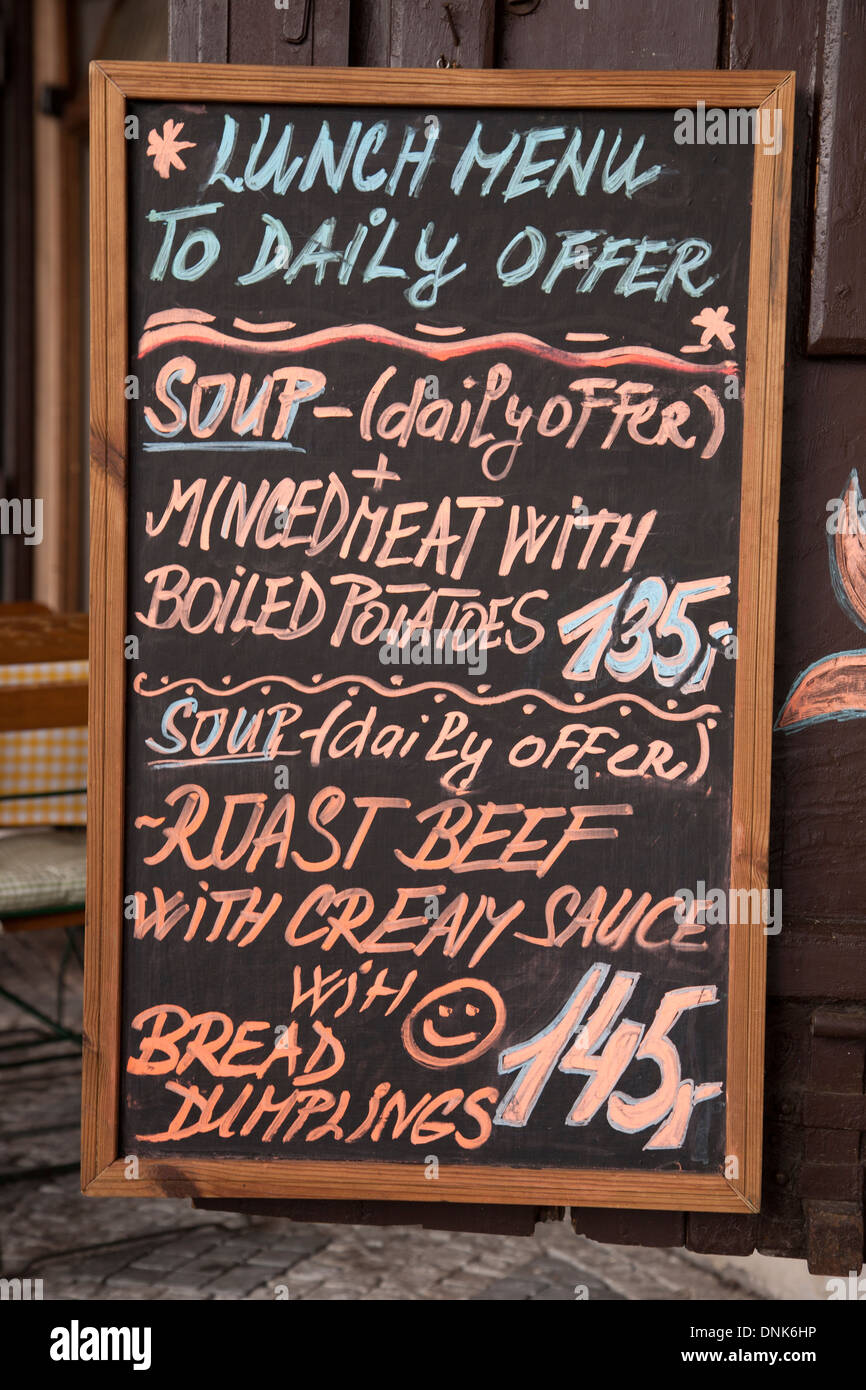 * LUNCH MENU
TO DAILY OFFER *
SOUP - (daily OFFER)
+
MINCED MEAT WITH
BOILED POTATOES 135,-
SOUP - (daily offer)
- ROAST BEEF
WITH CREAMY SAUCE
WiTH
BREAD
DUMPLINGS 145,-
alamy
Image ID: DNK6HP
www.alamy.com